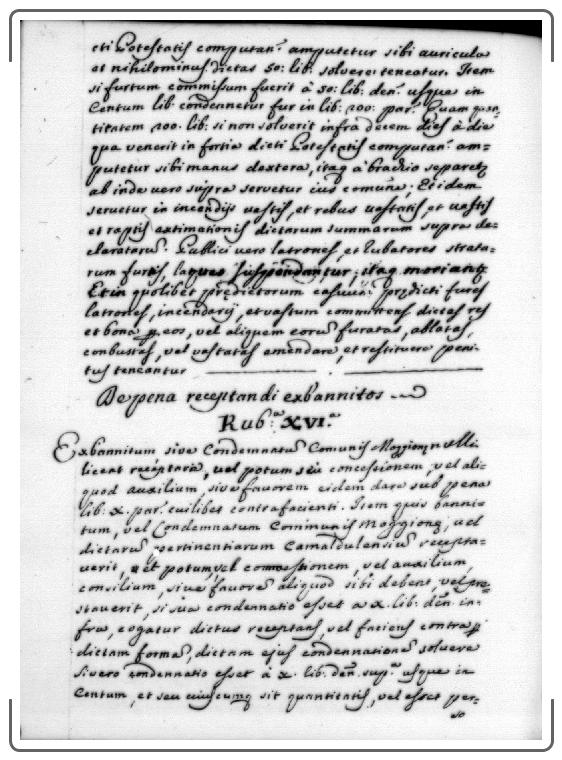 cti Potestatis computan. amputetur sibi auricula
et nihilominus dictas 50: lib: solvere teneatur. Item
si furtum commissum fuerit à 50: lib: den: usque in
Centum lib: condennetur fur in lib: 200: par: Quam quan-
titatem 200: lib: si non solverit infra decem dies à die
qua venerit in fortia dicti Potestatis computan: am=
putetur sibi manus dextera, itaq à brachio separetz
ab inde vero supra servetur ius comune; Et idem
servetur in incendijs vastis, et rebus vastatis, et vastis
et raptis extimationis dictarum summarum supra de-
claratarum. Publici vero latrones, et Rubatores strata-
rum furtis, laqueo suspendantur; itaq moriantz
Et in quolibet predictorum casuum predicti fures
latrones, incendarij, et vastum committens dictas res
et bona p eos, vel aliquem eorum furatas, ablatas,
conbustas, vel vastatas emendare, et restituere peni-
tus teneantur
De pena receptandi exbannitos
Rub.a XVI.a
Exbannitum sive Condemnatum Comunis Moggiona nulli
liceat receptare, vel potum seu concessionem, vel ali-
quod auxilium, sive favorem eidem dare sub pena
lib: x. par: cuilibet contrafacienti. Item quis banni-
tum, vel Condemnatum Communis Moggione, vel
dictarum pertinentiarum Camaldulensium recepta-
verit, vel potum, vel commestionem, vel auxilium,
consilium, sive favorem aliquod sibi debent, vel pre-
staverit, si sua condennatio esset a x. lib: den. in-
fra, cogatur dictus receptans, vel faciens contra p
dictam formam, dictam ejus condennationem solvere
Si vero condennatio esset à x. lib: den: sup.a usque in
Centum, et seu cuiuscumq sit quantitatis, vel esset per-
so